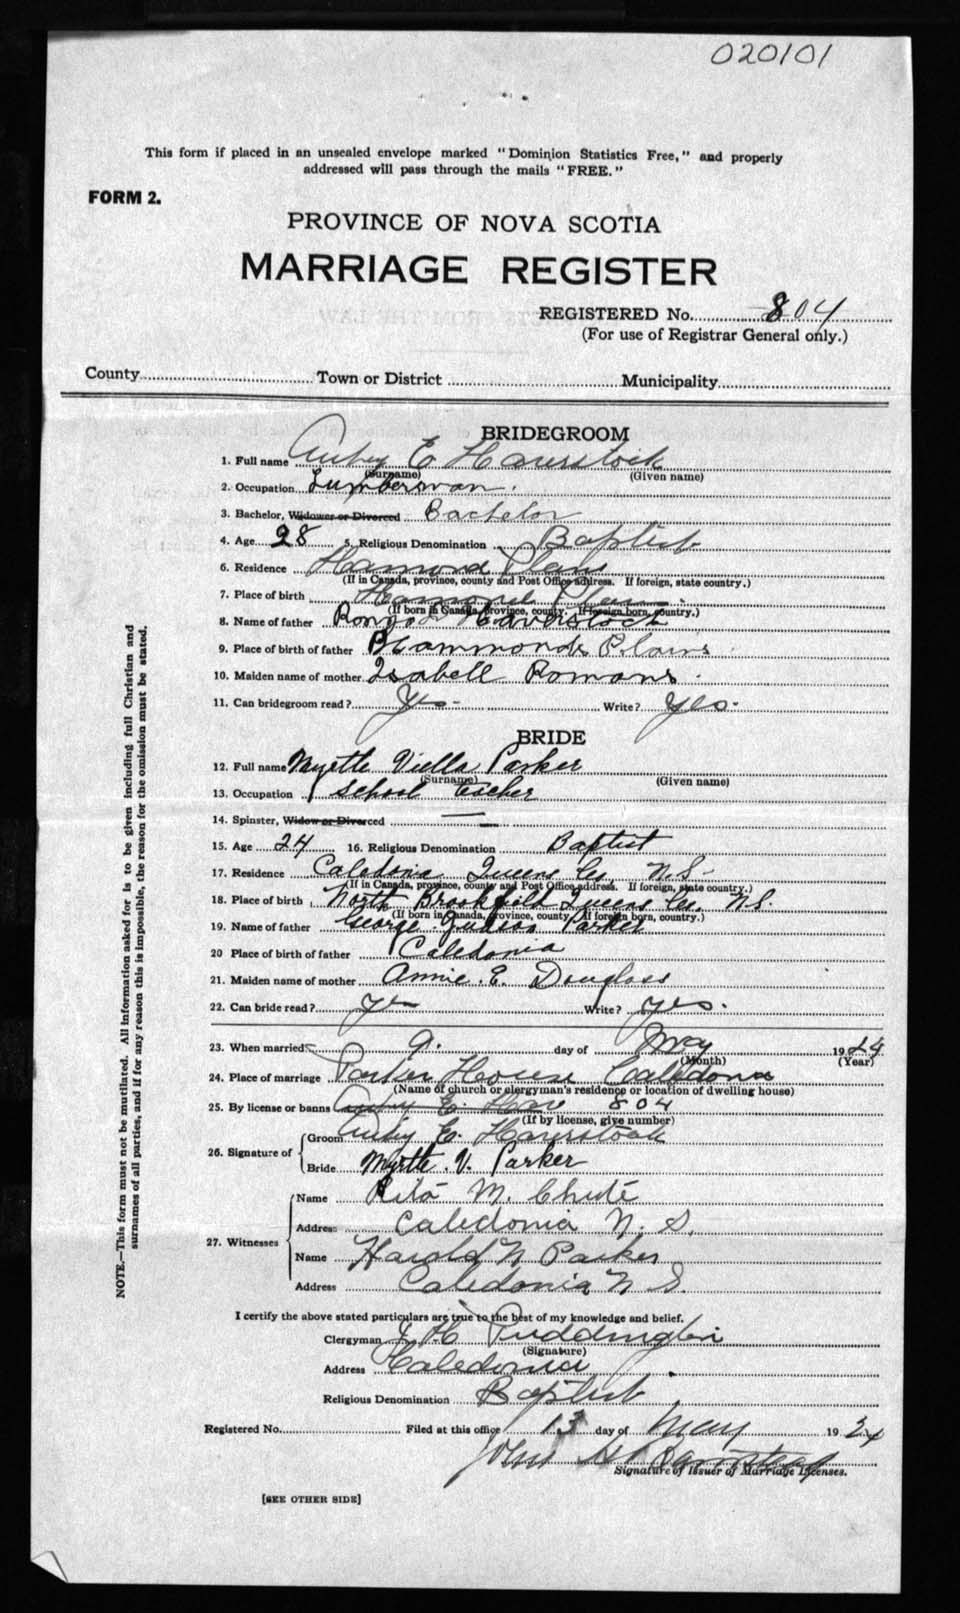 020101
This form if placed in an unsealed envelope marked "Dominion Statistics Free," and properly
addressed will pass through the mails "FREE."
FORM 2.
PROVINCE OF NOVA SCOTIA
MARRIAGE REGISTER
REGISTERED No. 804
(For use of Registrar General only.)
County Town or District Municipality
BRIDEGROOM
1. Full name E Haverstock
(Surname) (Given name)
2. Occupation Lumberman.
3. Bachelor, Widower or Divorced Bachelor
4. Age 28 5. Religious Denomination Baptist
6. Residence Hamond Plains
(If in Canada, province, county and Post Office address. If foreign, state country.)
7. Place of birth Hamond Plains
(If born in Canada, province, county. If foreign born, country.)
8. Name of father Haverstock
9. Place of birth of father Hammonds Plains
10. Maiden name of mother Isabell Romans
11. Can bridegroom read? Yes Write? Yes.
BRIDE
12. Full name Myrtle Viella Parker
(Surname) (Given name)
13. Occupation School Teacher
14. Spinster, Widow or Divorced —
15. Age 24 16. Religious Denomination Baptist
17. Residence Caledonia Queens Co. N.S.
(If in Canada, province, county and Post Office address. If foreign, state country.)
18. Place of birth North Brookfield Queens Co. N.S.
(If born in Canada, province, county. If foreign born, country.)
19. Name of father George Judson Parker
20 Place of birth of father Caledonia
21. Maiden name of mother Annie. E. Douglass
22. Can bride read? Yes Write? Yes.
23. When married 9. day of May 1924
(Month) (Year)
24. Place of marriage Parker House Caledonia
(Name of church or clergyman's residence or location of dwelling house)
25. By license or banns 804
(If by license, give number)
26. Signature of
Groom E. Haverstock
Bride Myrtle. V. Parker
27. Witnesses
Name Rita M. Chute
Address Caledonia N. S.
Name Harold N Parker
Address Caledonia N S.
I certify the above stated particulars are true to the best of my knowledge and belief.
Clergyman J H Puddington
(Signature)
Address Caledonia
Religious Denomination Baptist
Registered No. Filed at this office 13 day of May 1924
John
Signature of Issuer of Marriage Licenses.
[SEE OTHER SIDE]
NOTE.—This form must not be mutilated. All information asked for is to be given including full Christian and
surnames of all parties, and if for any reason this is impossible, the reason for the omission must be stated.